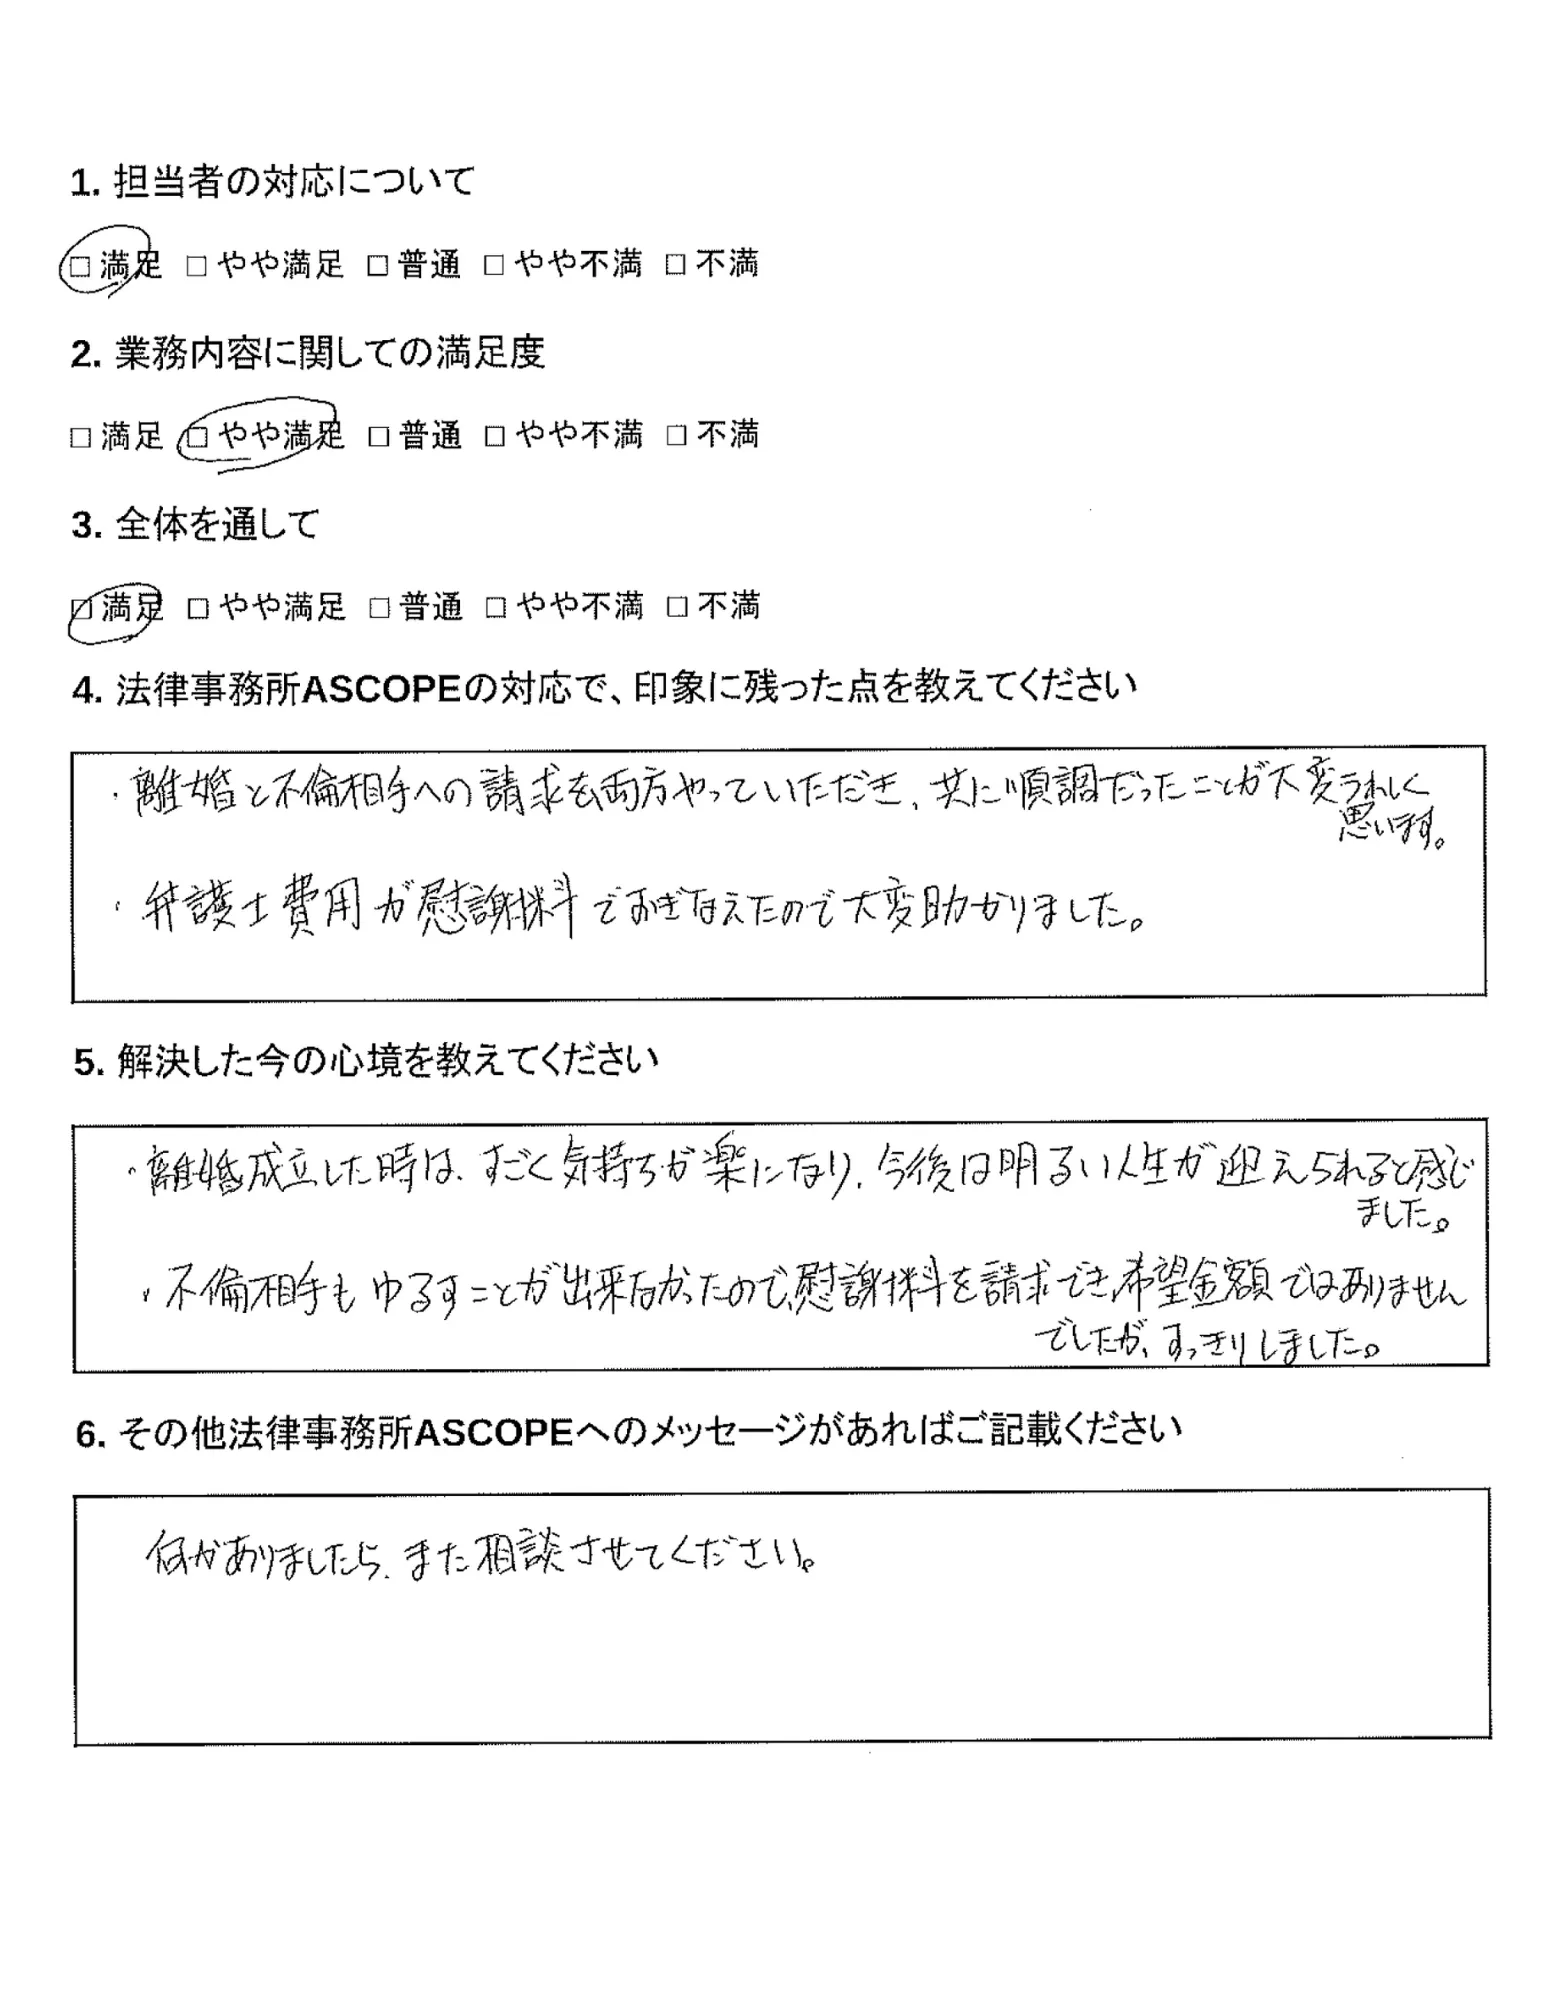 1. 担当者の対応について
□ 満足 □ やや満足 □ 普通 □ やや不満 □ 不満
2. 業務内容に関しての満足度
□ 満足 □ やや満足 □ 普通 □ やや不満 □ 不満
3. 全体を通して
□ 満足 □ やや満足 □ 普通 □ やや不満 □ 不満
4. 法律事務所ASCOPEの対応で、印象に残った点を教えてください
・離婚と不倫相手への請求を両方やっていただき、共に順調だったことが大変うれしく
思います。
・弁護士費用が慰謝料でおぎなえたので大変助かりました。
5. 解決した今の心境を教えてください
・離婚成立した時は、すごく気持ちが楽になり、今後は明るい人生が迎えられると感じ
ました。
・不倫相手もゆるすことが出来なかったので、慰謝料を請求でき、希望金額ではありません
でしたが、すっきりしました。
6. その他法律事務所ASCOPEへのメッセージがあればご記載ください
何かありましたら、また相談させてください。